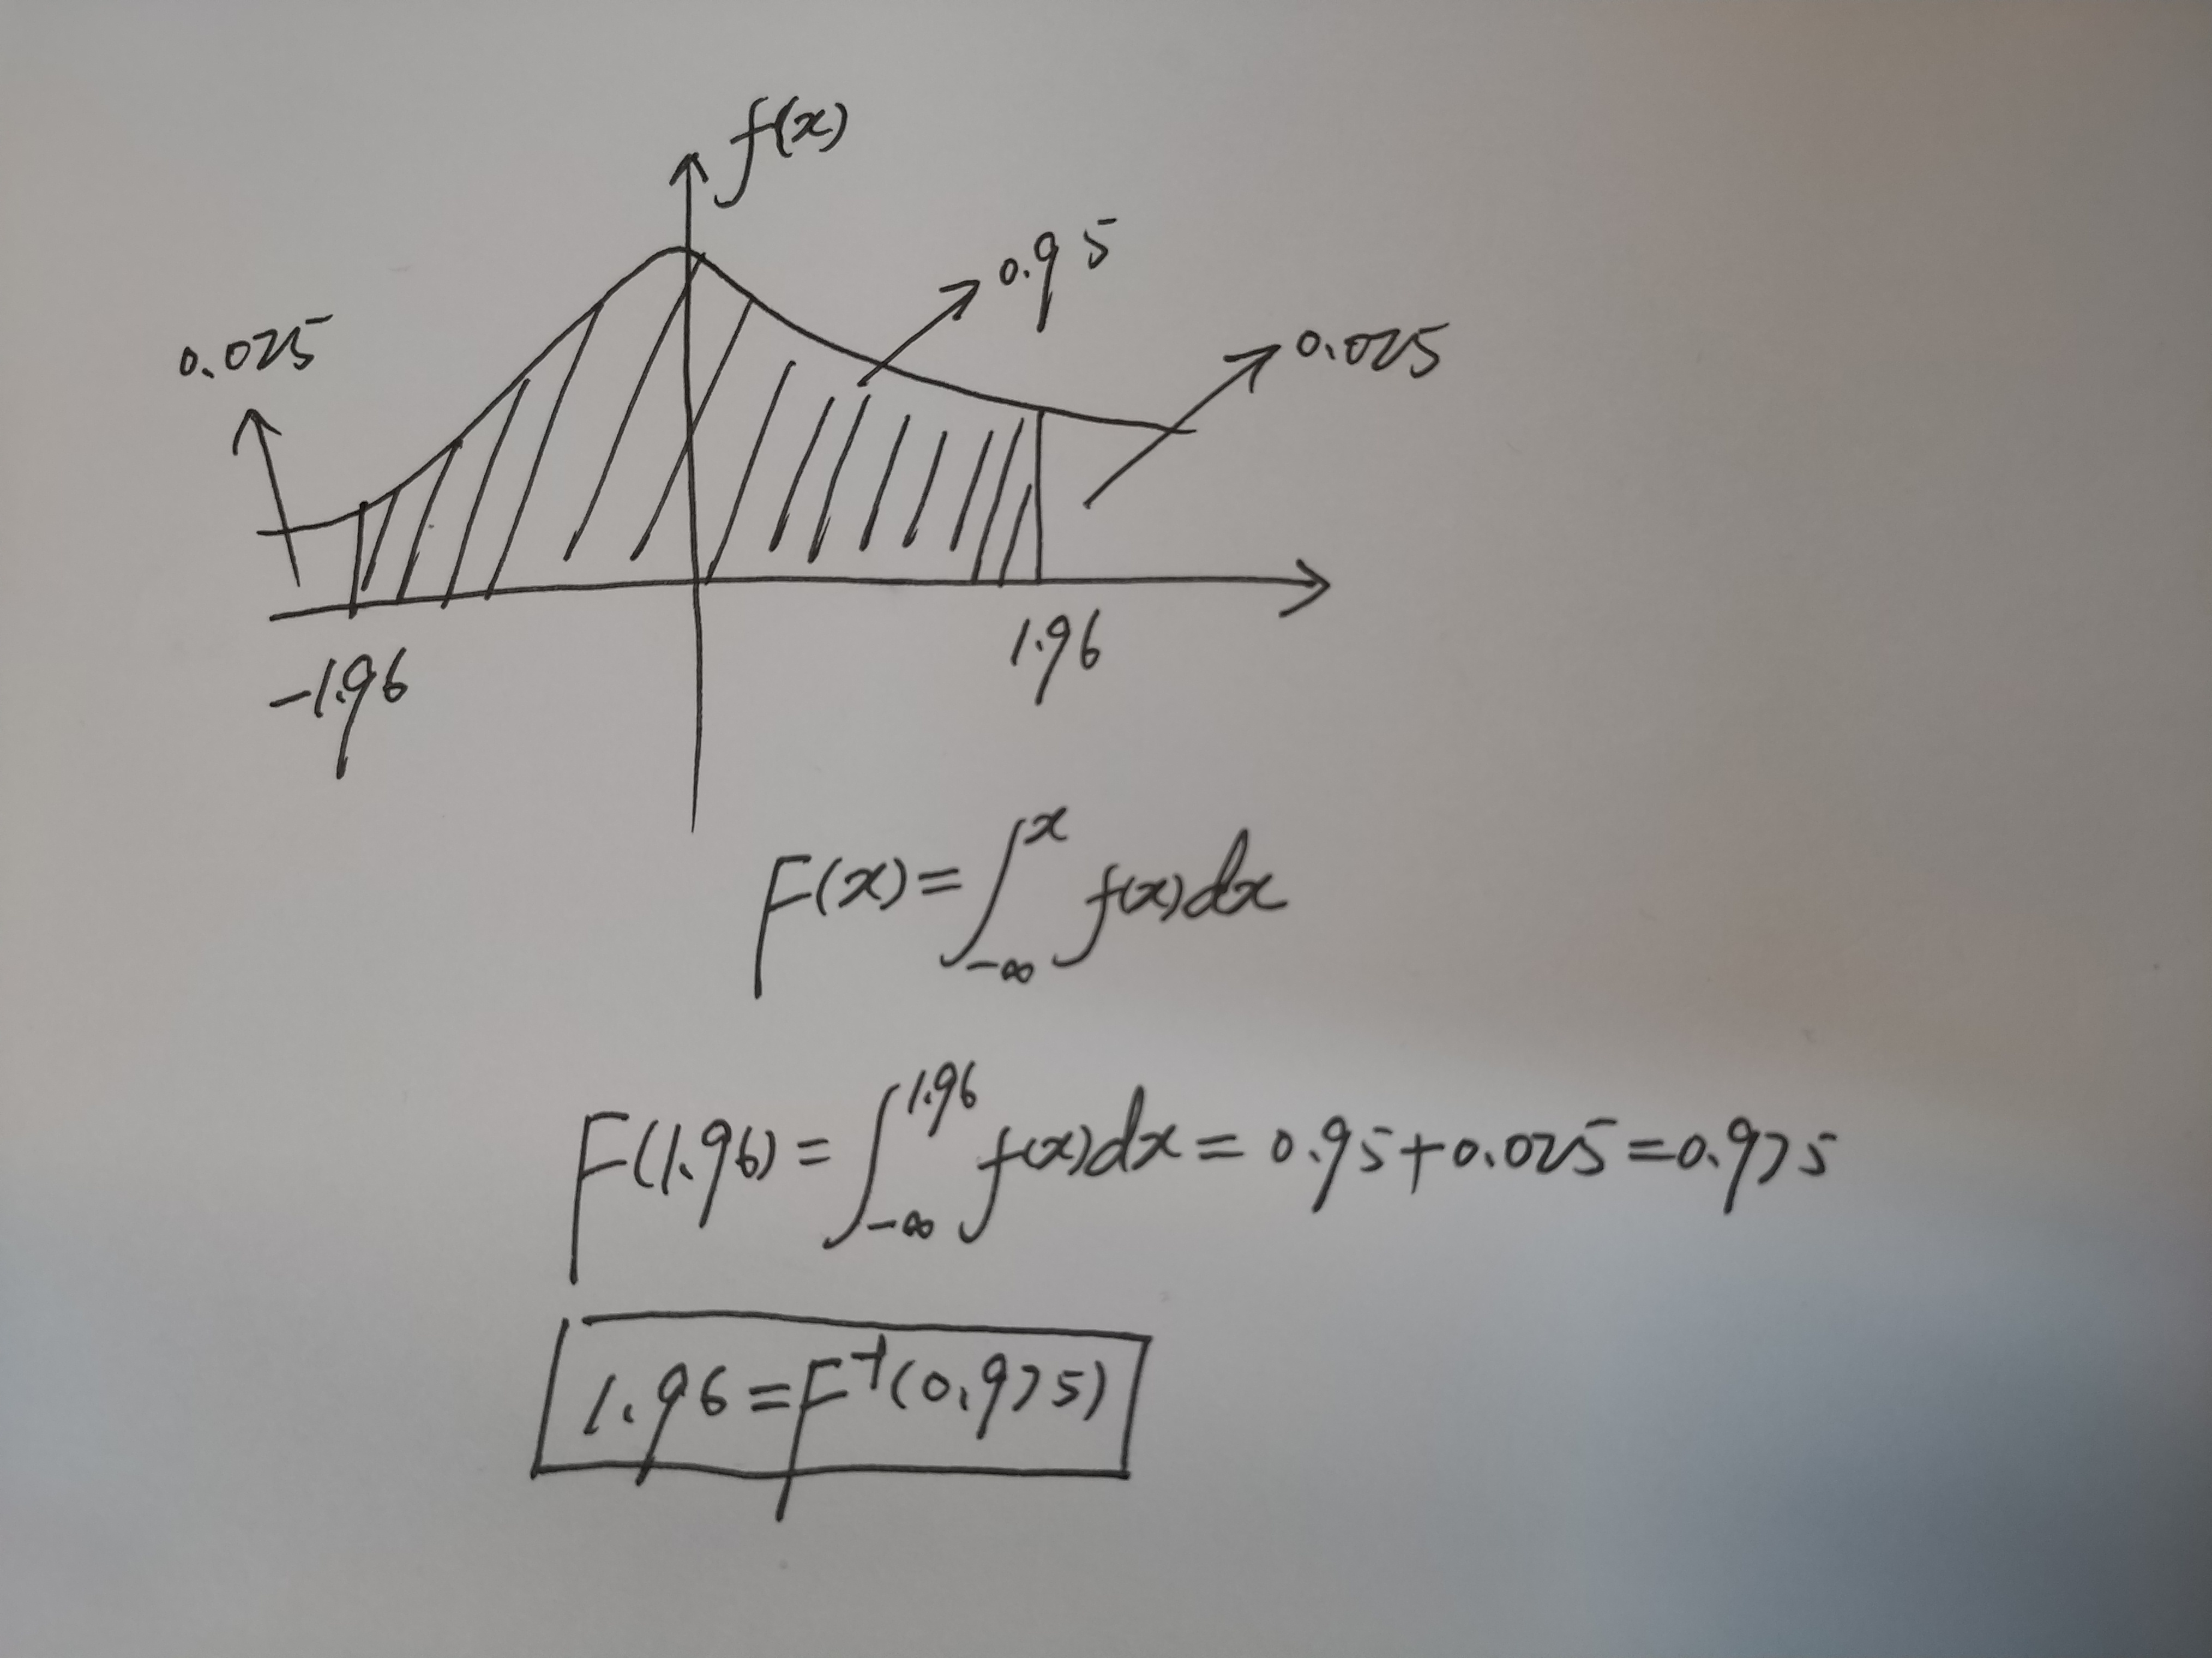 f(x)
0.95
0.025
0.025
-1.96
1.96
F(x)=∫_{-∞}^{x} f(x)dx
F(1.96)=∫_{-∞}^{1.96} f(x)dx=0.95+0.025=0.975
1.96=F⁻¹(0.975)